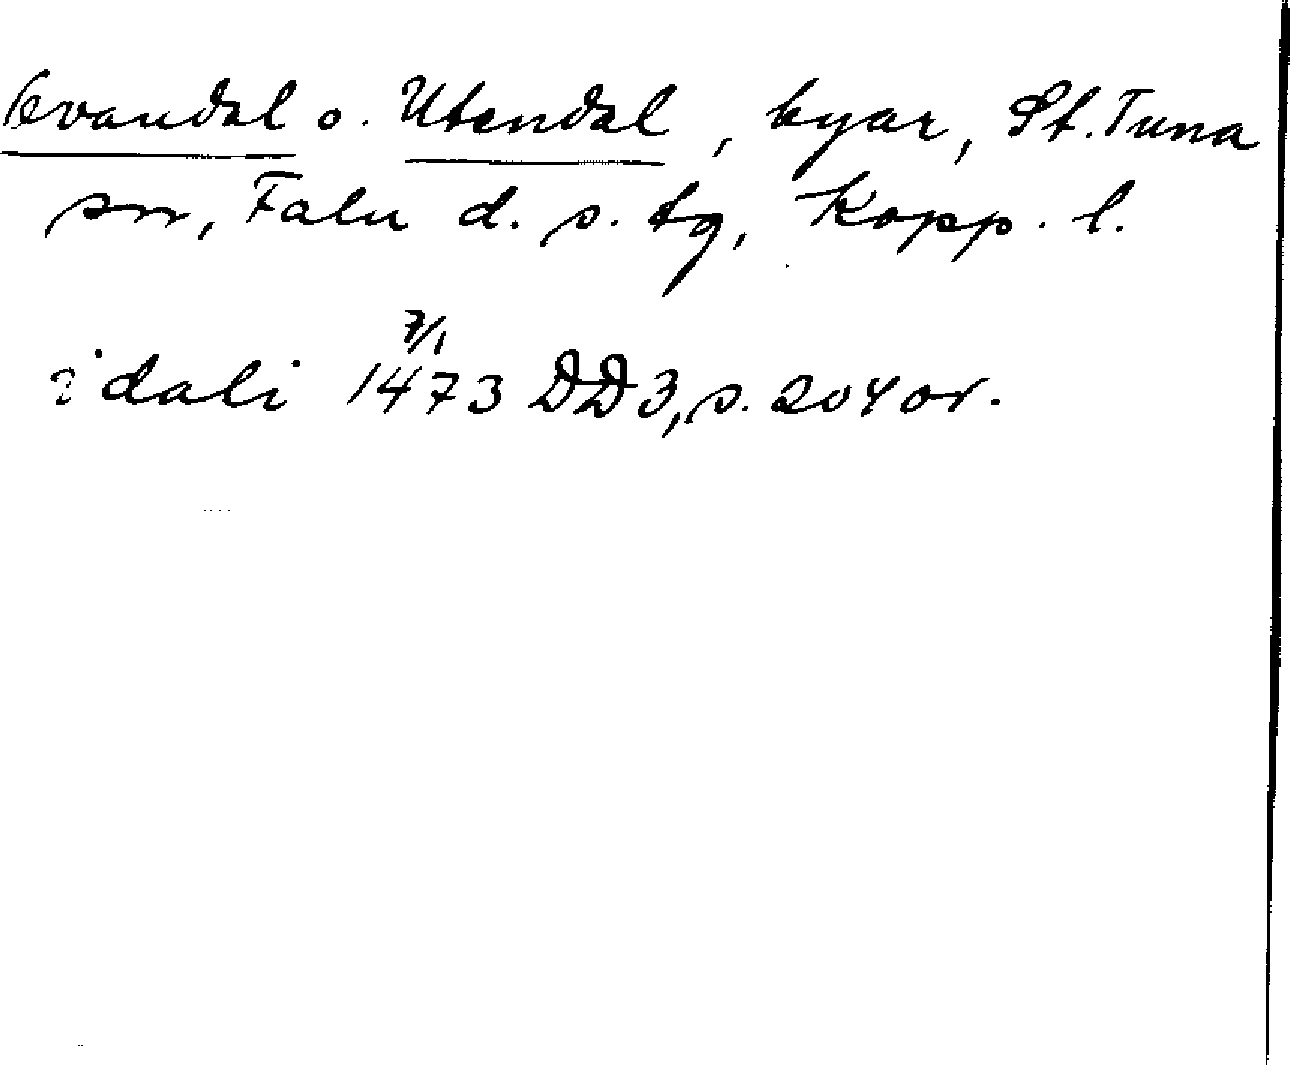 Ovandal o. Utendal, byar, St. Tuna
sn, Falu d. s. tg, Kopp. l.
i dali 1473 7/1 DD3, s. 204 or.